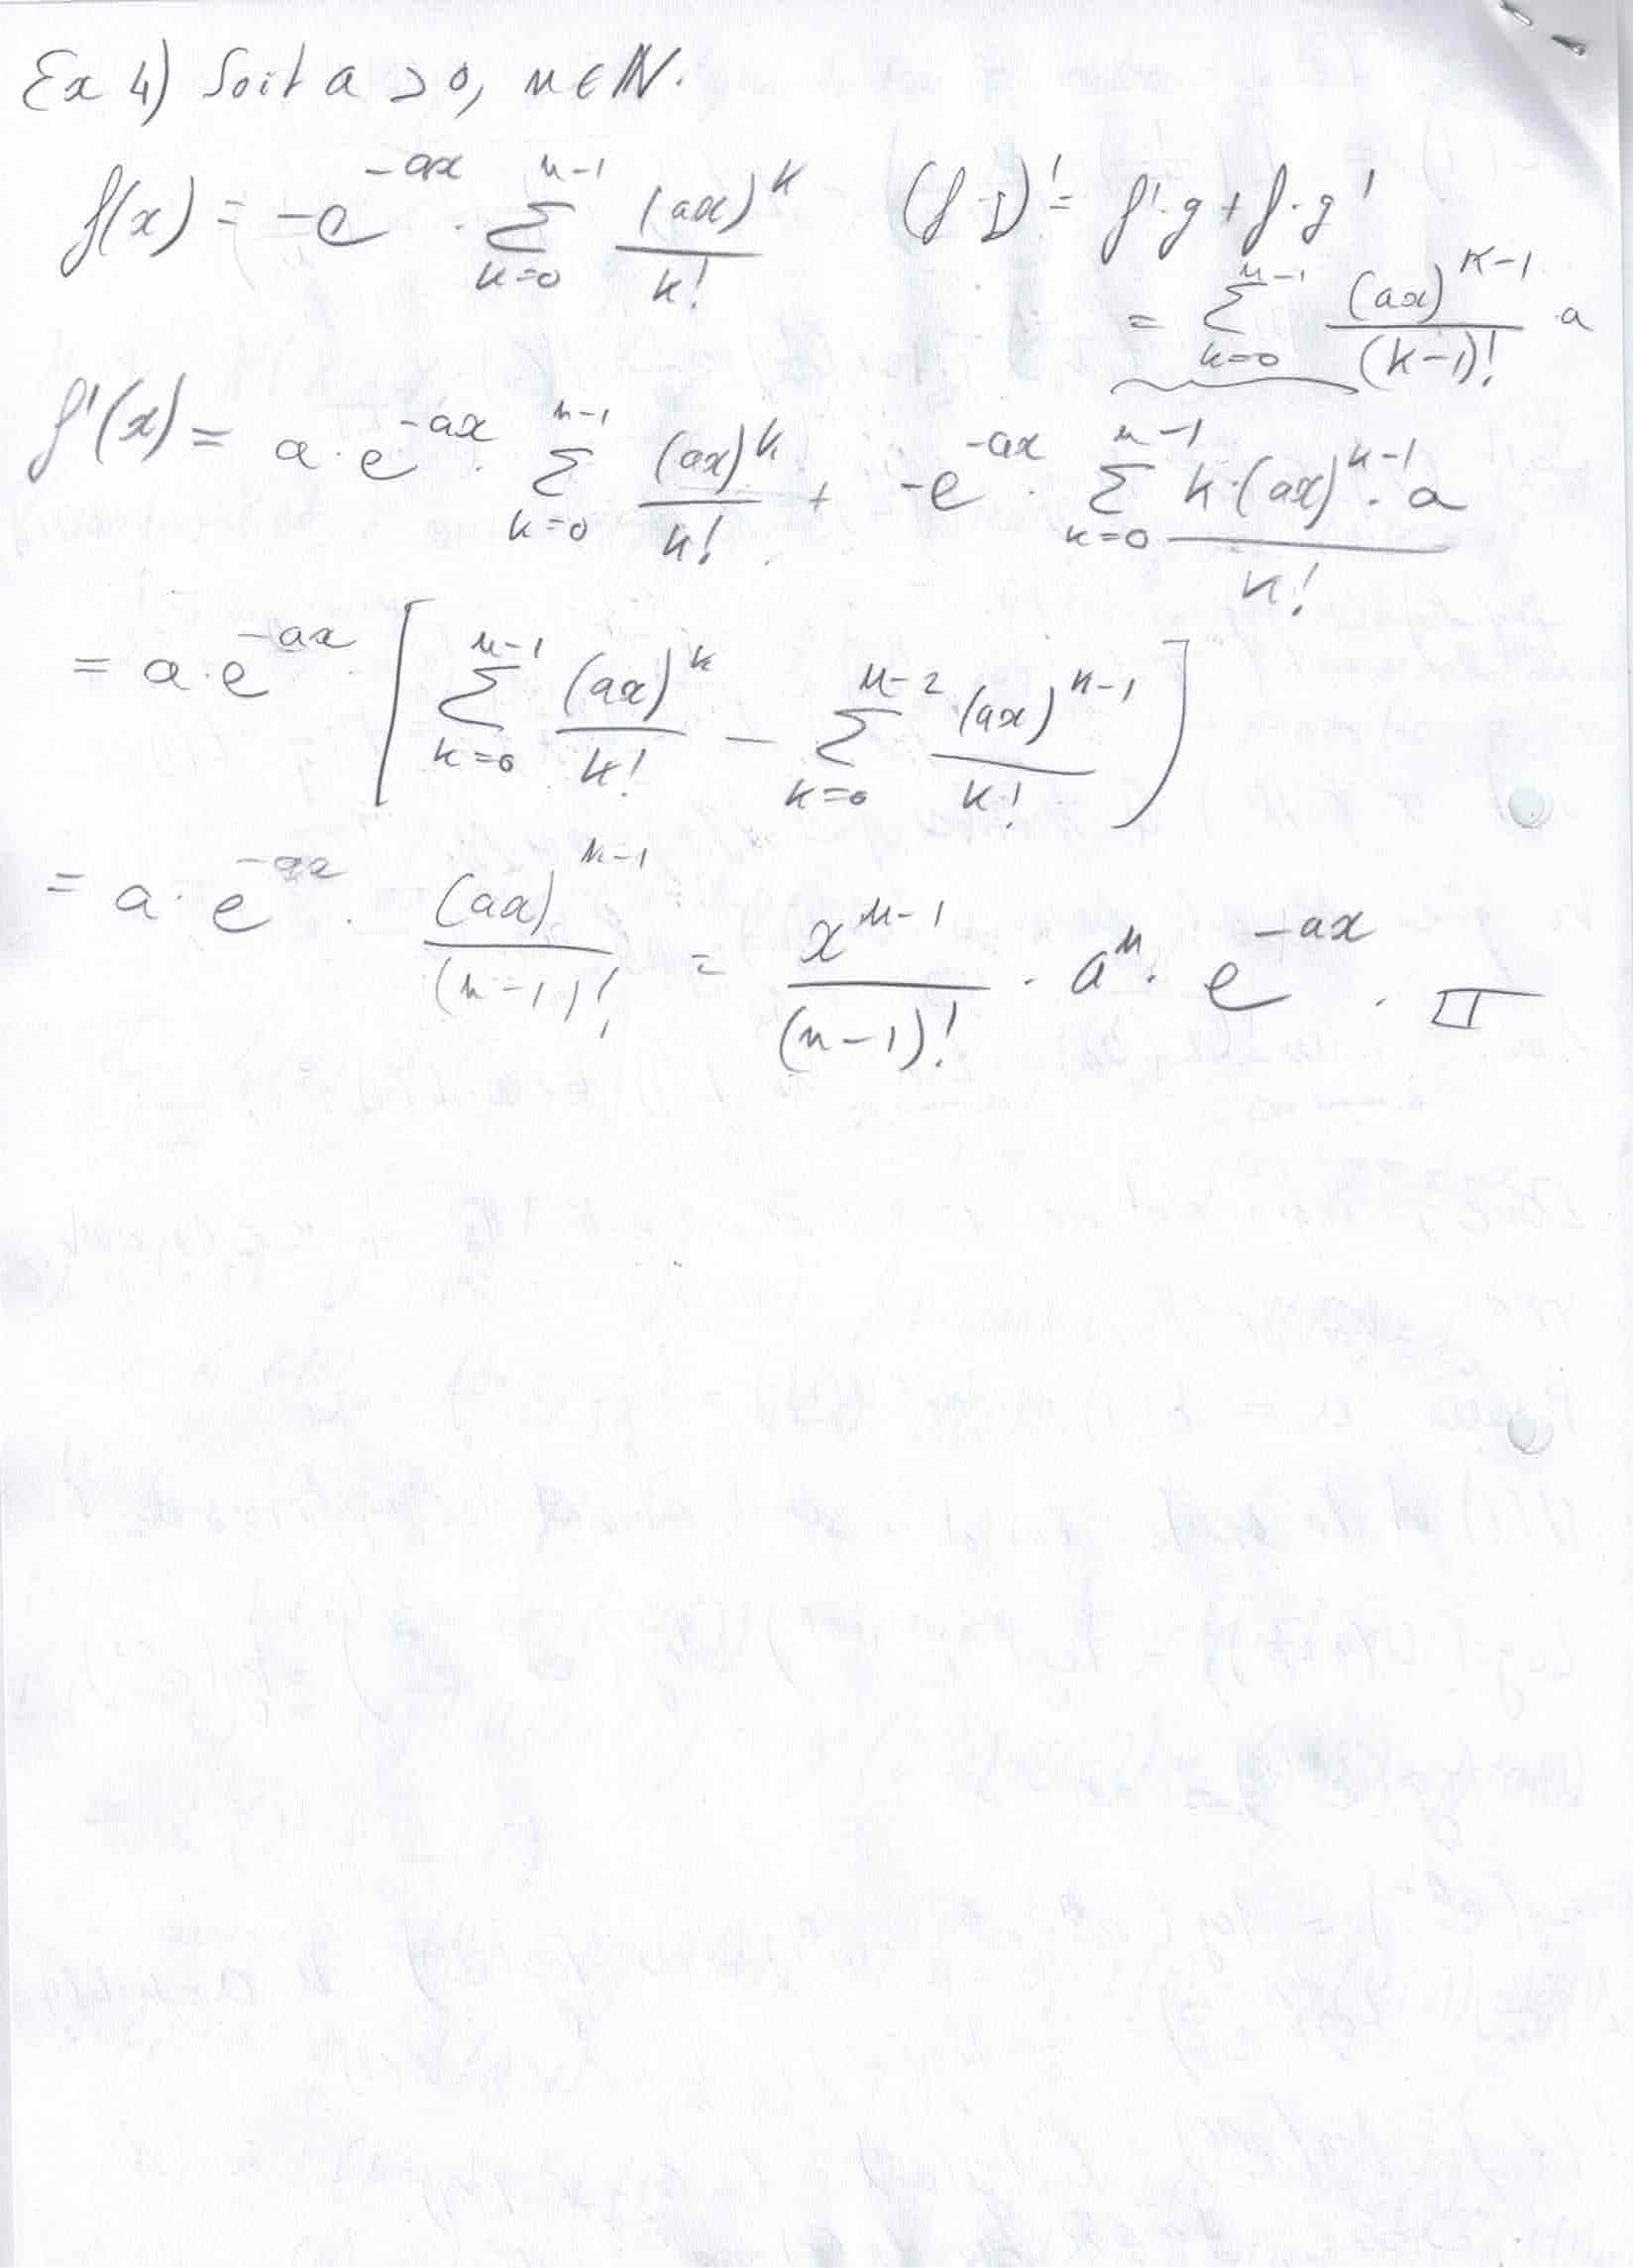 Ex 4) Soit a > 0, n ∈ ℕ.
f(x) = -e^{-ax} · \sum_{k=0}^{n-1} \frac{(ax)^k}{k!} (f·g)' = f'·g + f·g'
= \sum_{k=0}^{n-1} \frac{(ax)^{k-1}}{(k-1)!} · a
f'(x) = a · e^{-ax} · \sum_{k=0}^{n-1} \frac{(ax)^k}{k!} + -e^{-ax} · \sum_{k=0}^{n-1} \frac{k·(ax)^{k-1} · a}{k!}
= a · e^{-ax} [ \sum_{k=0}^{n-1} \frac{(ax)^k}{k!} - \sum_{k=0}^{n-2} \frac{(ax)^{k-1}}{k!} ]
= a · e^{-ax} · \frac{(ax)^{n-1}}{(n-1)!} = \frac{x^{n-1}}{(n-1)!} · a^n · e^{-ax} . □